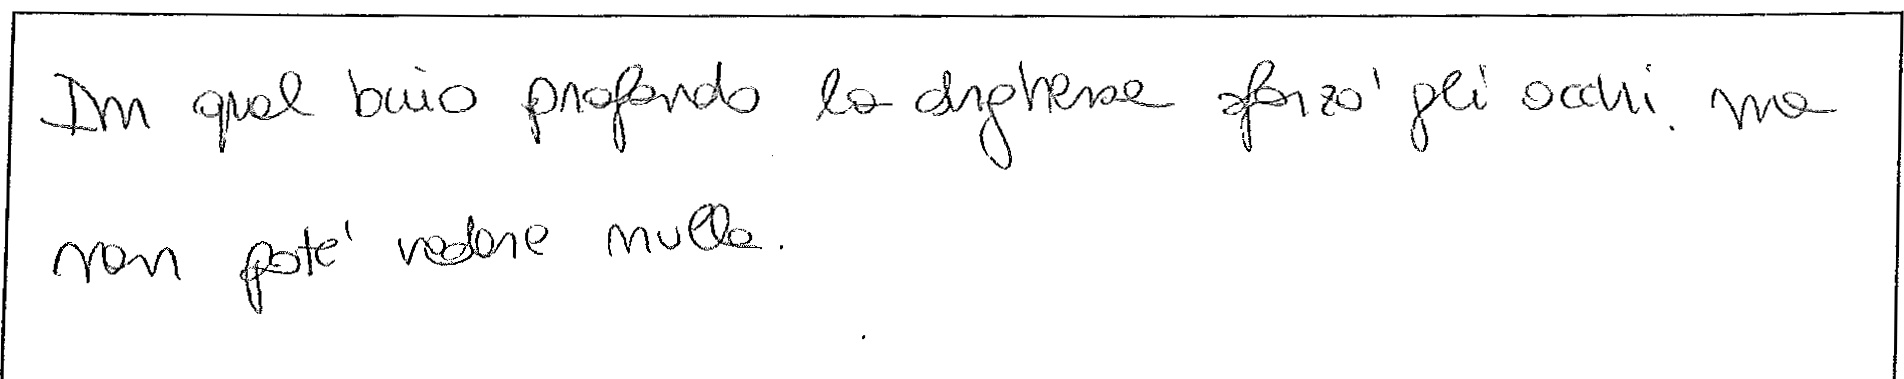 In quel buio profondo la duchessa sforzò gli occhi. ma
non poté vedere nulla.